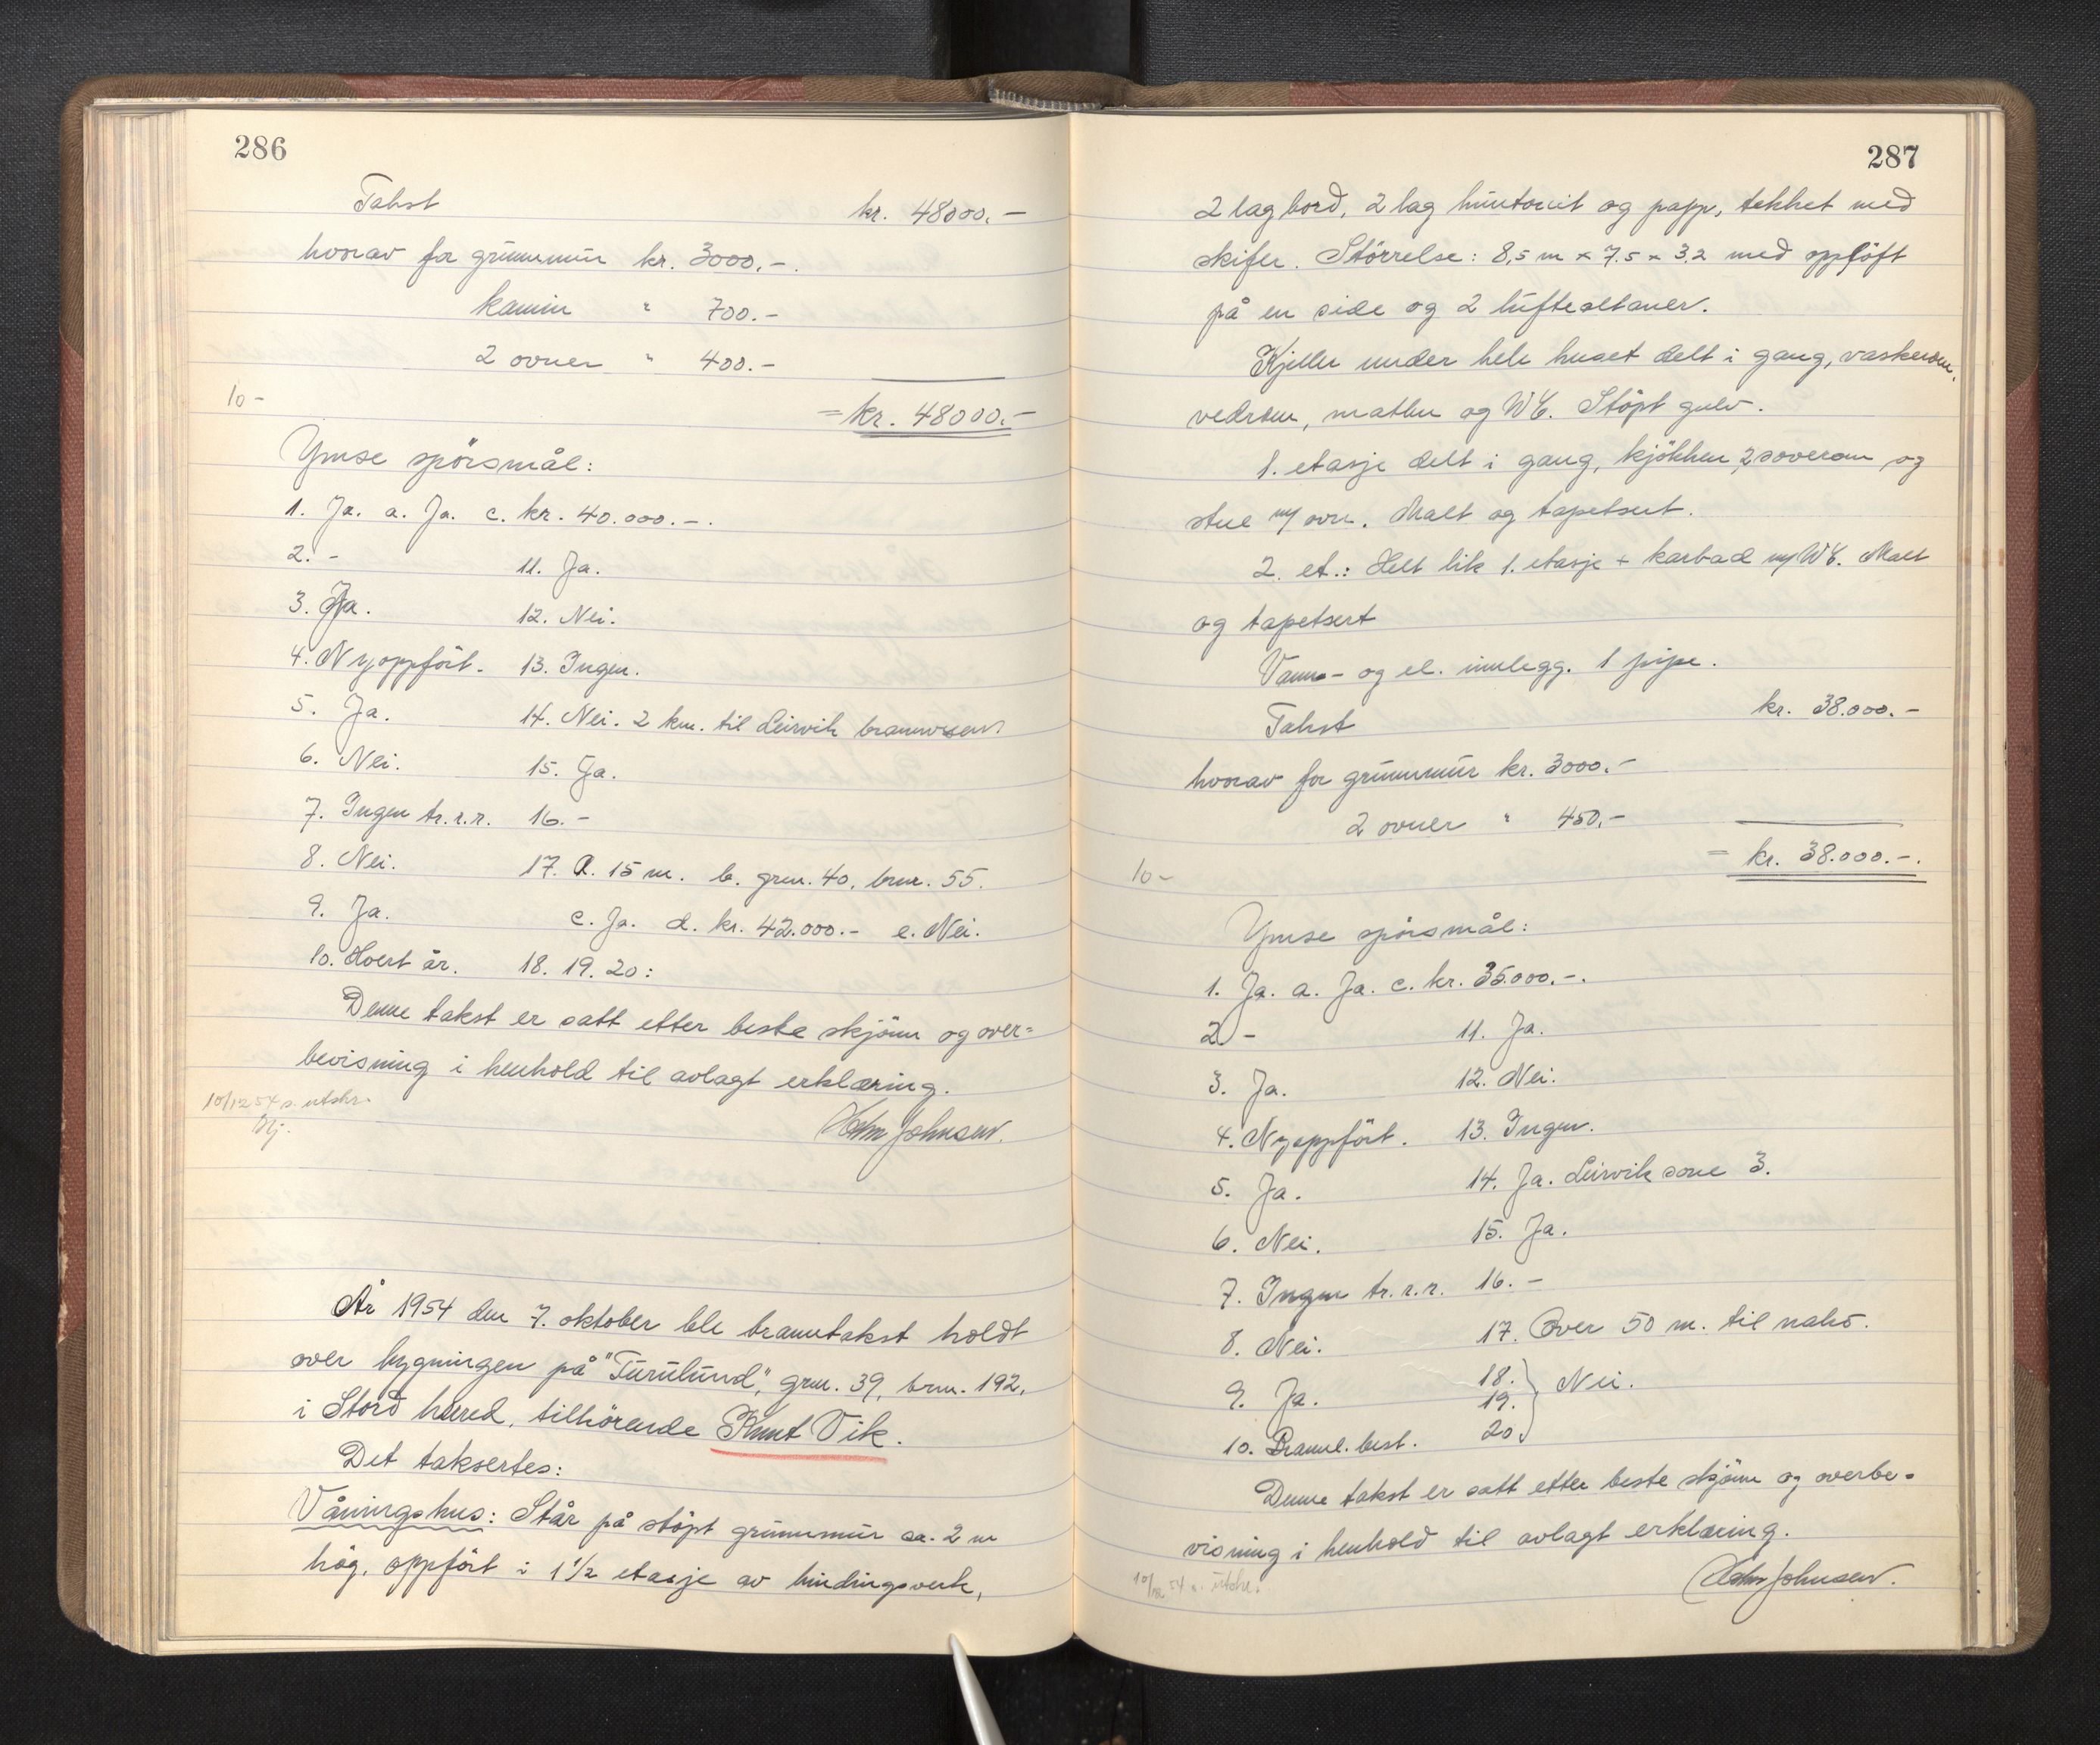 286
Takst kr. 48000.-
hvorav for grunnmur kr. 3000.-.
kamin " 700.-
2 ovner " 400.-
10-
= kr. 48000.-
Ymse spörsmål:
1. Ja. a. Ja. c. kr. 40.000.-.
2. - 11. Ja.
3. Ja. 12. Nei.
4. Nyoppfört. 13. Ingen.
5. Ja. 14. Nei. 2 km. til Leirvik brannvesen
6. Nei. 15. Ja.
7. Ingen tr.r.r. 16. -
8. Nei. 17. a. 15 m. b. grnr. 40, brnr. 55.
9. Ja. c. Ja. d. kr. 42.000.- e. Nei.
10. Hvert år. 18. 19. 20:
Denne takst er satt etter beste skjönn og over=
bevisning i henhold til avlagt erklæring.
10/12 54 s. utskr.
Johnsen.
År 1954 den 7. oktober ble branntakst holdt
over bygningen på "Furulund", grnr. 39, brnr. 192,
i Stord herred, tilhörende Knut Vik.
Det taksertes:
Våningshus: Står på stöpt grunnmur ca. 2 m
hög, oppfört i 1 1/2 etasje av bindingsverk,
287
2 lag bord, 2 lag huntonit og papp, tekket med
skifer. Störrelse: 8,5 m x 7.5 x 3.2 med opplöft
på en side og 2 luftealtaner.
Kjeller under hele huset delt i gang, vaskerom,
vedrom, matbu og WC. Stöpt gulv.
1. etasje delt i gang, kjökken, 2 soverom og
stue m/ ovn. Malt og tapetsert.
2. et.: Helt lik 1. etasje + karbad m/ WC. Malt
og tapetsert
Vann- og el. innlegg. 1 pipe.
Takst kr. 38.000.-
hvorav for grunnmur kr. 3000.-
2 ovner " 450.-
= kr. 38.000.-.
10-
Ymse spörsmål:
1. Ja. a. Ja. c. kr. 35.000.-.
2. - 11. Ja.
3. Ja. 12. Nei.
4. Nyoppfört. 13. Ingen.
5. Ja. 14. Ja. Leirvik sone 3.
6. Nei. 15. Ja.
7. Ingen tr.r.r. 16. -
8. Nei. 17. Over 50 m. til nabo.
9. Ja. 18. 19. Nei.
10. Brannl. best. 20.
Denne takst er satt etter beste skjönn og overbe-
visning i henhold til avlagt erklæring.
10/12 54 s. utskr.
Johnsen.